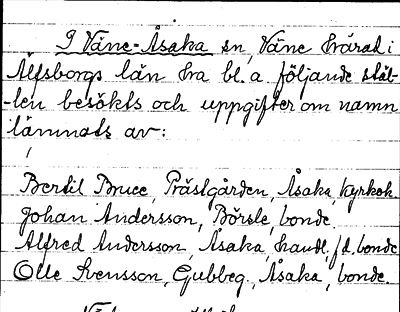 I Väne-Åsaka sn, Väne härad i
Älfsborgs län ha bl. a. följande ställ-
-len besökts och uppgifter om namn
lämnats av:
Bertil Bruce, Prästgården, Åsaka, kyrkoh.
Johan Andersson, Börsle, bonde.
Alfred Andersson, Åsaka, handl., f.d. bonde
Olle Svensson, Gubbeg., Åsaka, bonde.